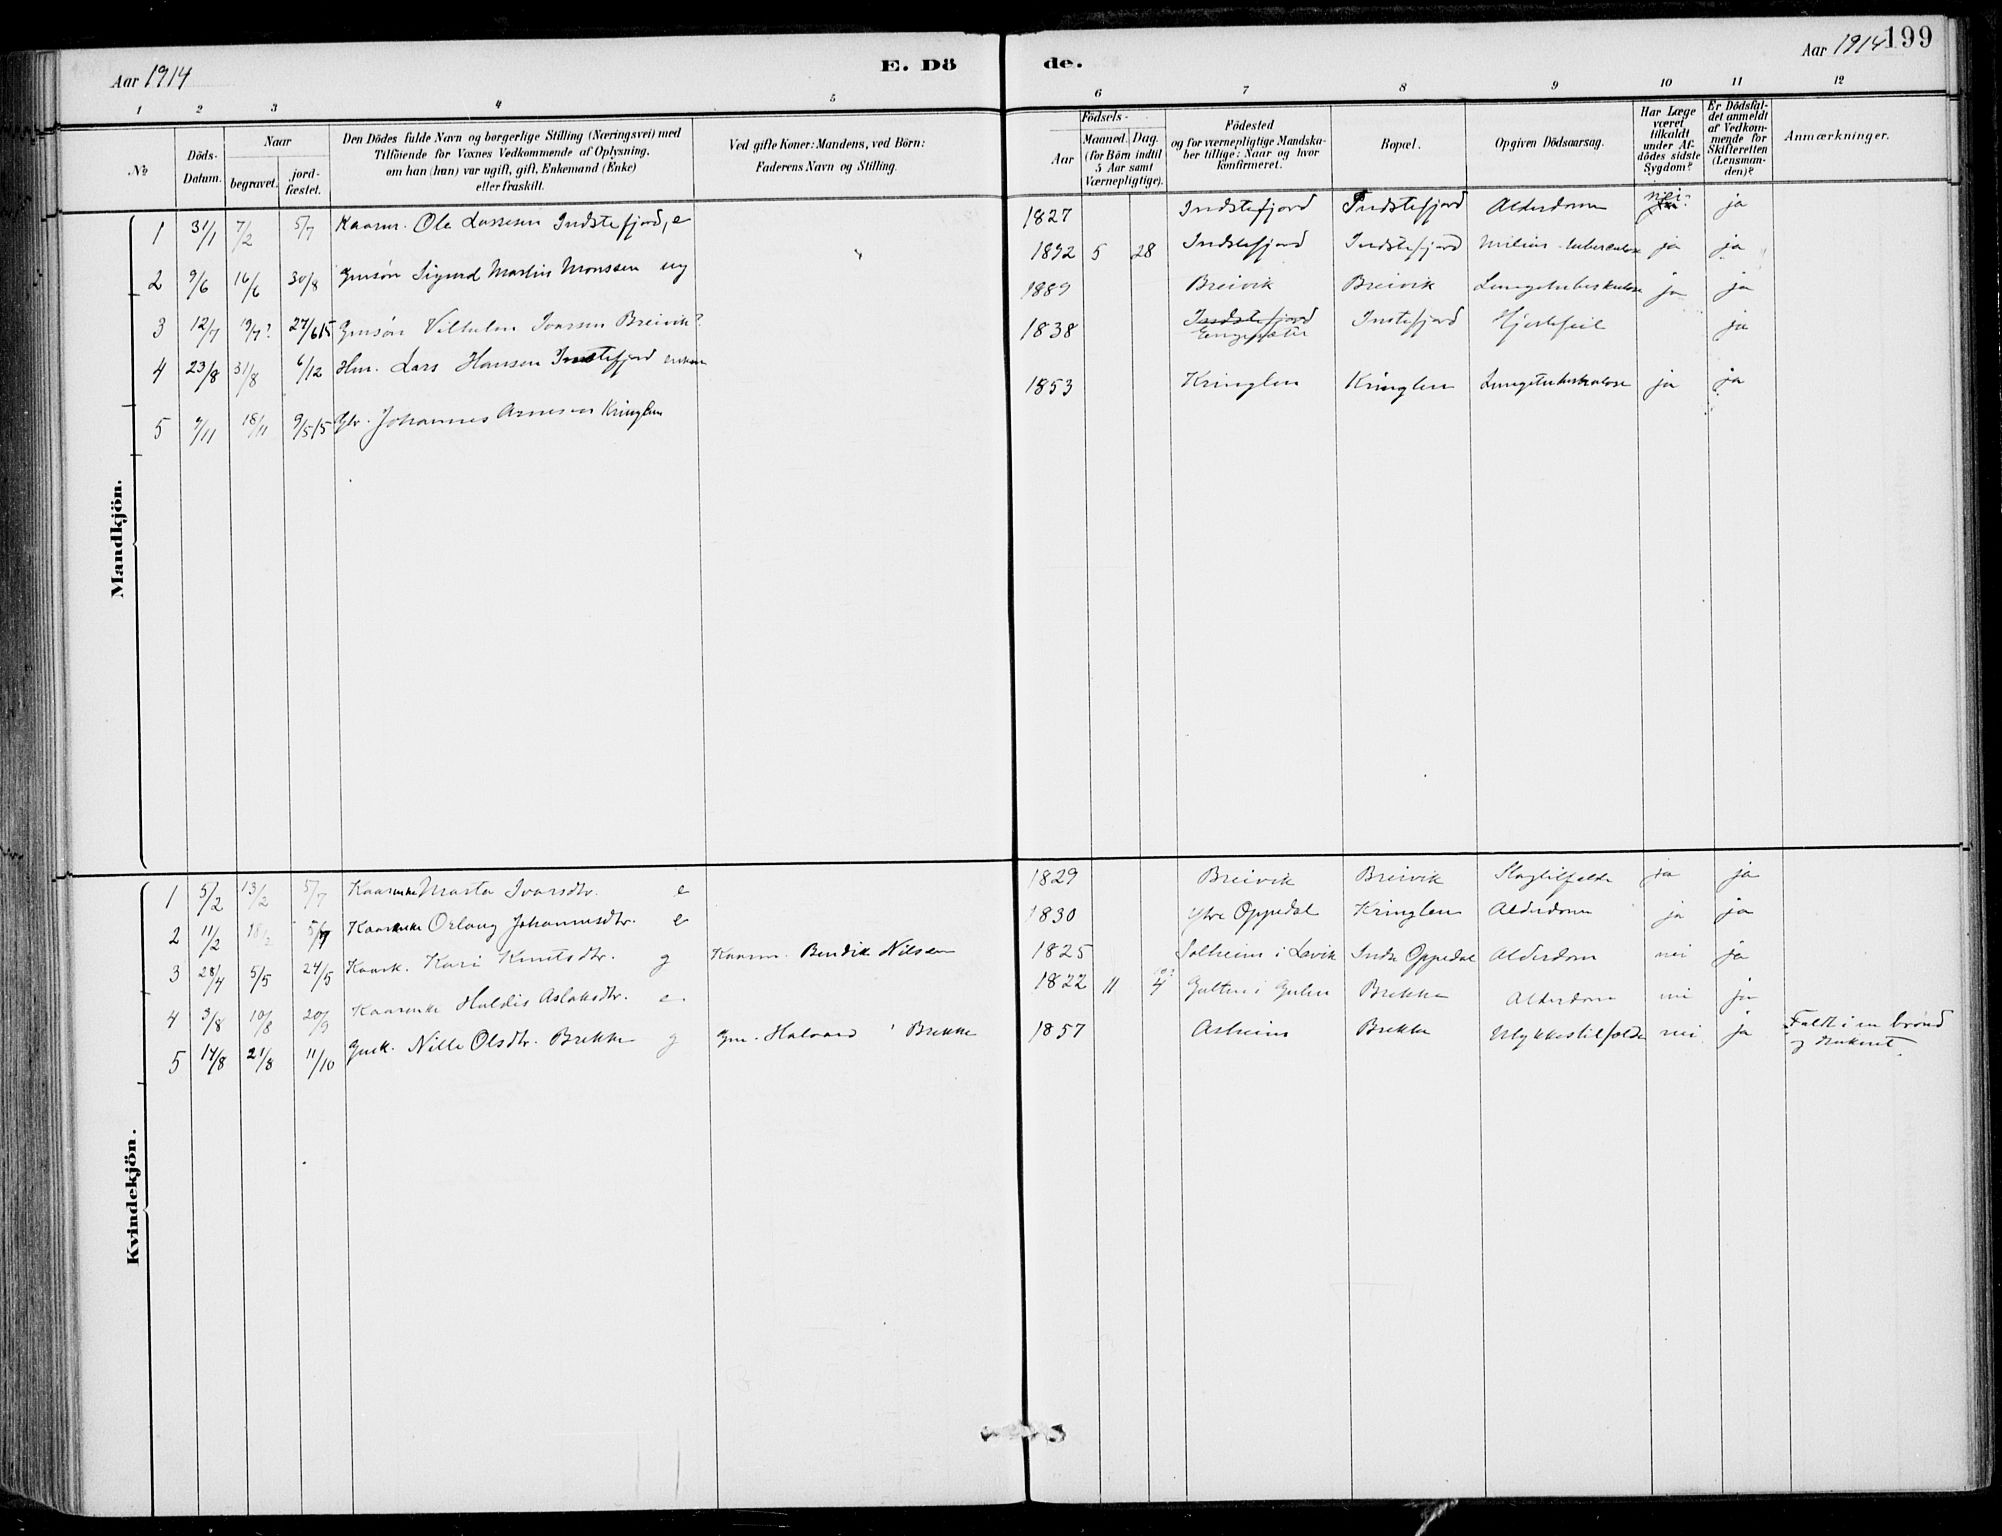 Aar 1914
E. Dö
de.
Aar 1914
199
1 2 3 4 5 6 7 8 9 10 11 12
No
Döds-
Datum.
Naar
begravet.
jord-
fæstet.
Den Dödes fulde Navn og borgerlige Stilling (Næringsvei) med
Tilföiende for Voxnes Vedkommende af Oplysning,
om han (hun) var ugift, gift, Enkemand (Enke)
eller fraskilt.
Ved gifte Koner: Mandens, ved Börn:
Faderens Navn og Stilling.
Födsels-
Aar
Maaned. Dag.
(for Börn indtil
5 Aar samt
Værnepligtige).
Födested
og for værnepligtige Mandska-
ber tillige: Naar og hvor
konfirmeret.
Bopæl.
Opgiven Dödsaarsag.
Har Læge
været
tilkaldt
under Af-
dödes sidste
Sygdom?
Er Dödsfal-
det anmeldt
af Vedkom-
mende for
Skifteretten
(Lensman-
den)?
Anmærkninger.
Mandkjön.
1 31/1 7/2 5/7 Kaarm. Ole Lassesen Indstefjord, e 1827 Indstefjord Indstefjord Alderdom nei? ja
2 9/6 16/6 30/8 Gmsøn Sigurd Martin Monssen ug " 1892 5 28 Indstefjord Indstefjord tuberculose ja ja
3 12/7 19/7? 27/6 15 Gmsøn Vilhelm Ivarsen Breivik? 1889 Breivik Breivik Lungetuberkulose ja ja
4 23/8 31/8 6/12 Hm. Lars Hansen Instefjord enkem 1838 Indstefjord Instefjord Hjertefeil ja
5 9/11 18/11 9/5 15 Johannes Arnesen Kringlen 1853 Kringlen Kringlen Lungetuberkulose ja ja
Kvindekjön.
1 5/2 13/2 5/7 Kaarenke Marta Ivarsdtr. e 1829 Breivik Breivik Slagtilfelde ja ja
2 11/2 18/2 5/7 Kaarenke Orlaug Johannesdtr. e 1830 Ytre Oppedal Kringlen Alderdom ja ja
3 28/4 5/5 24/5 Kaark. Kari Knutsdtr. g Kaarm. Bendik Nilsen 1825 Solheim i Lavik Indre Oppedal Alderdom nei ja
4 3/8 10/8 20/9 Kaarenke Haldis Aslaksdtr. e 1822 11 4 i Gulen Brekke Alderdom nei ja
5 14/8 21/8 11/10 Gmk. Nille Olsdtr. Brekke g Gm. Halvard Brekke 1857 Asheim Brekke Ulykkestilfælde nei ja Faldt i en brønd
og druknet.